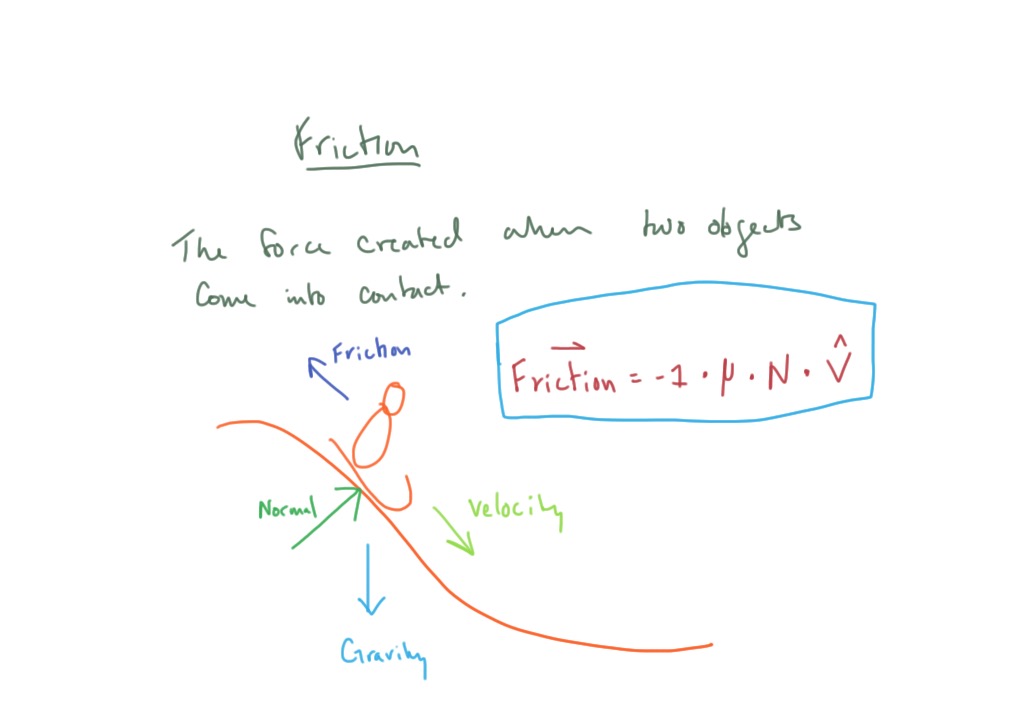 Friction
The force created when two objects
come into contact.
Friction
Friction = -1 · μ · N · V̂
Normal
Velocity
Gravity